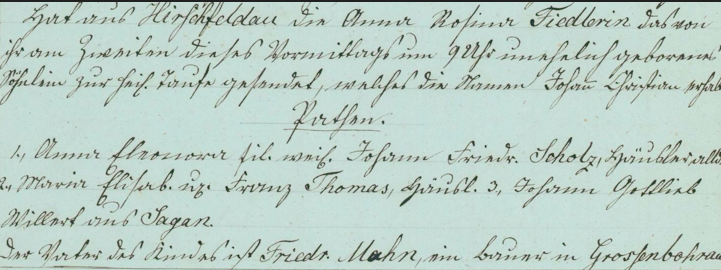 Hat aus Hirschfeldau die Anna Rosina Fiedlerin das von
ihr am Zweiten dieses Vormittags um 9 Uhr unehelich geborene
Söhnlein zur heil. Taufe gesendet, welches die Namen Johan̄ Christian erhalt
Pathen.
1., Anna Eleonora fil. weil. Johann Friedr. Scholz, Häusler allh.
2., Maria Elisab. ux. Franz Thomas, Häusl. 3., Johann Gottlieb
Willert aus Sagan.
Der Vater des Kindes ist Friedr. Mahn, ein Bauer in Grossenbohrau